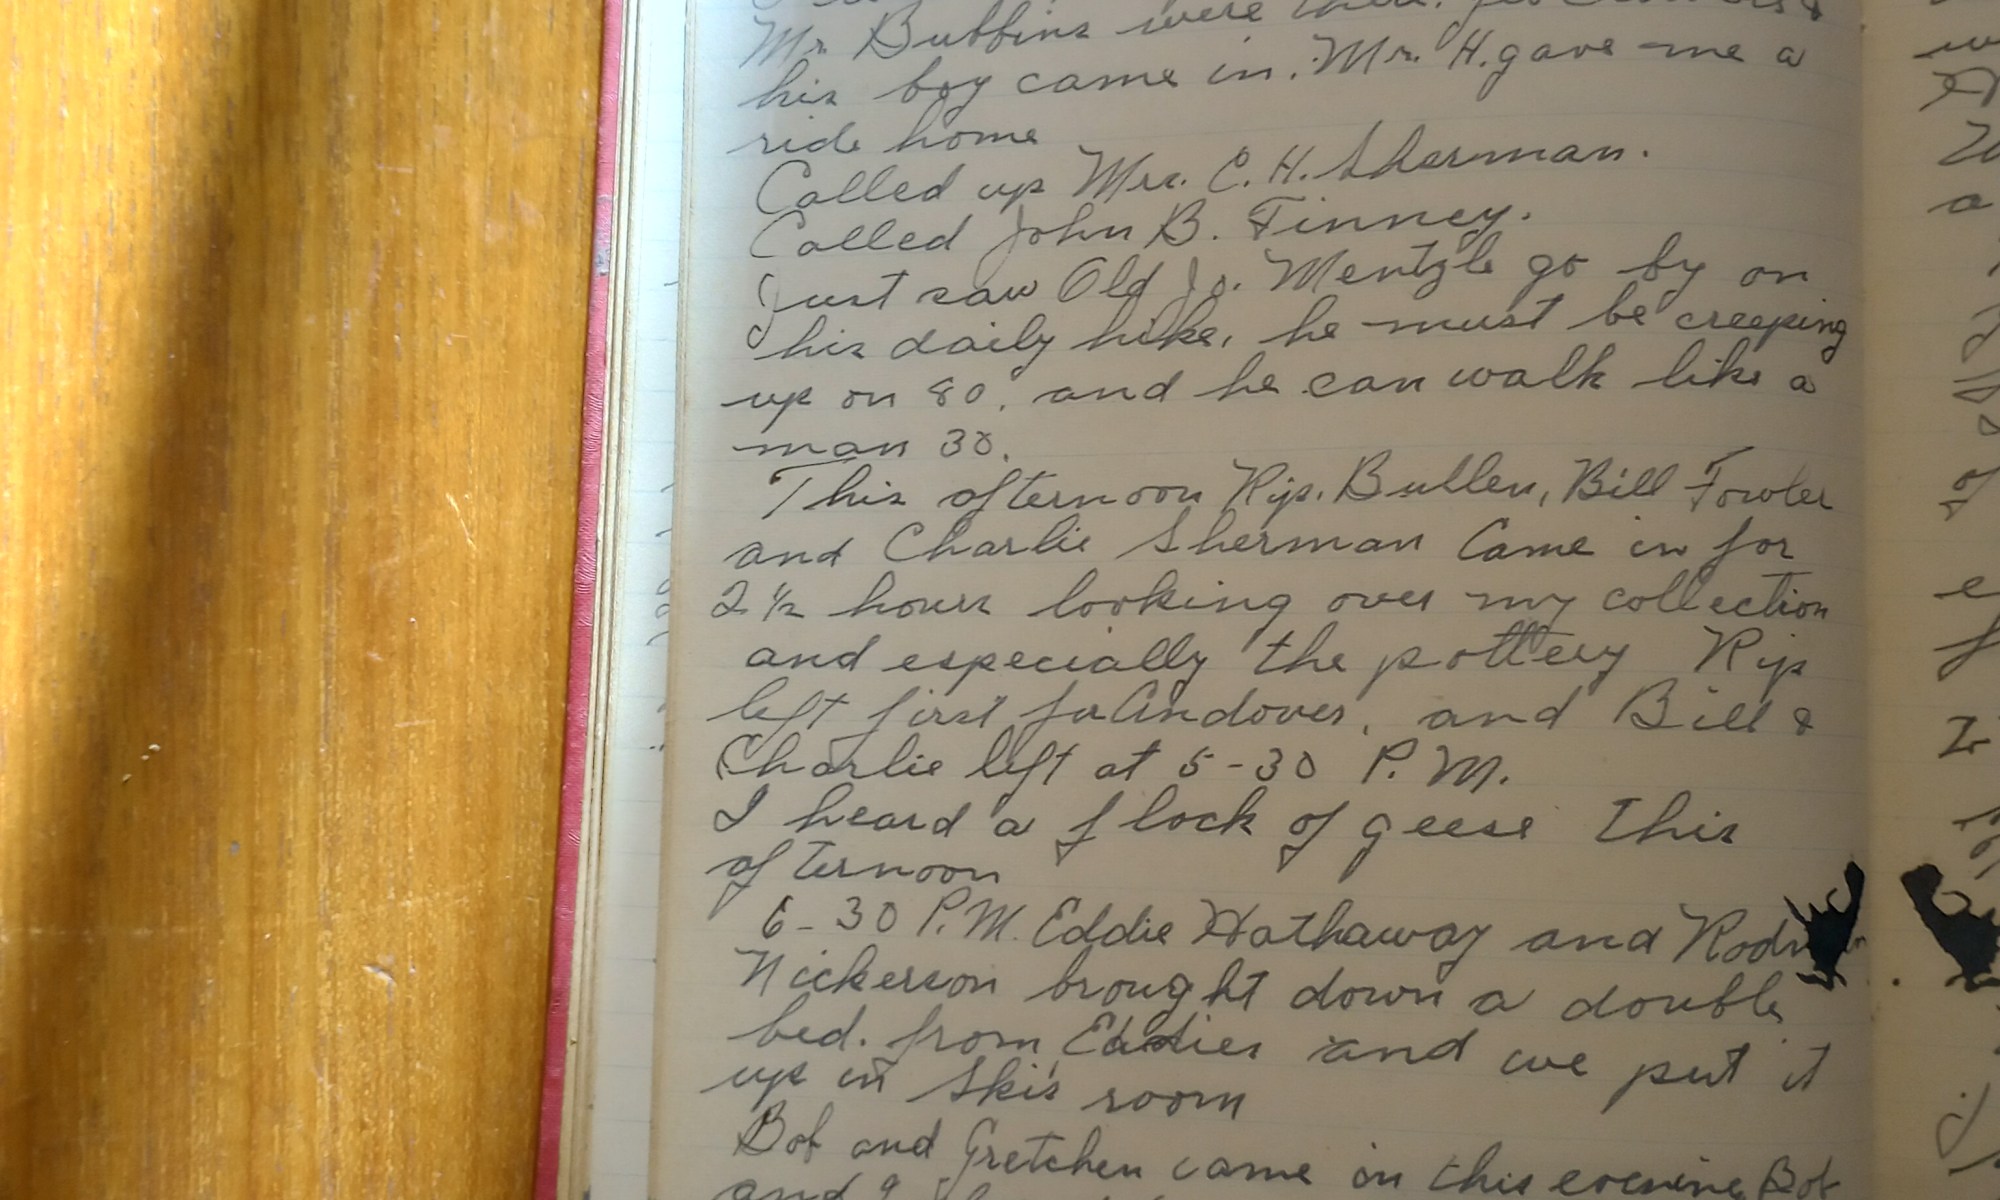 Mr. Bubbins were there.
his boy came in. Mr. H. gave me a
ride home
Called up Mrs. C. H. Sherman.
Called John B. Finney.
Just saw Old Jo. Mentzle go by on
his daily hike, he must be creeping
up on 80, and he can walk like a
man 30.
This afternoon Rip. Bullen, Bill Fowler
and Charlie Sherman Came in for
2 1/2 hours looking over my collection
and especially the pottery Rip
left first for Andover, and Bill &
Charlie left at 5-30 P.M.
I heard a flock of geese this
afternoon
6-30 P.M. Eddie Hathaway and
Nickerson brought down a double
bed. from Eddies and we put it
up in Skis room
Bob and Gretchen came in this evening Bob
and